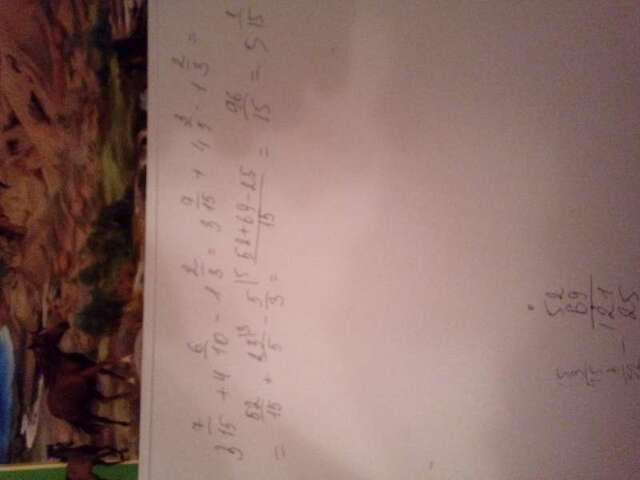 3 7/15 + 4 6/10 - 1 2/3 = 3 7/15 + 4 3/5 - 1 2/3 =
= 52/15 + 23/5 - 5/3 = 52+69-25/15 = 96/15 = 5 1/15
52
69
121
25